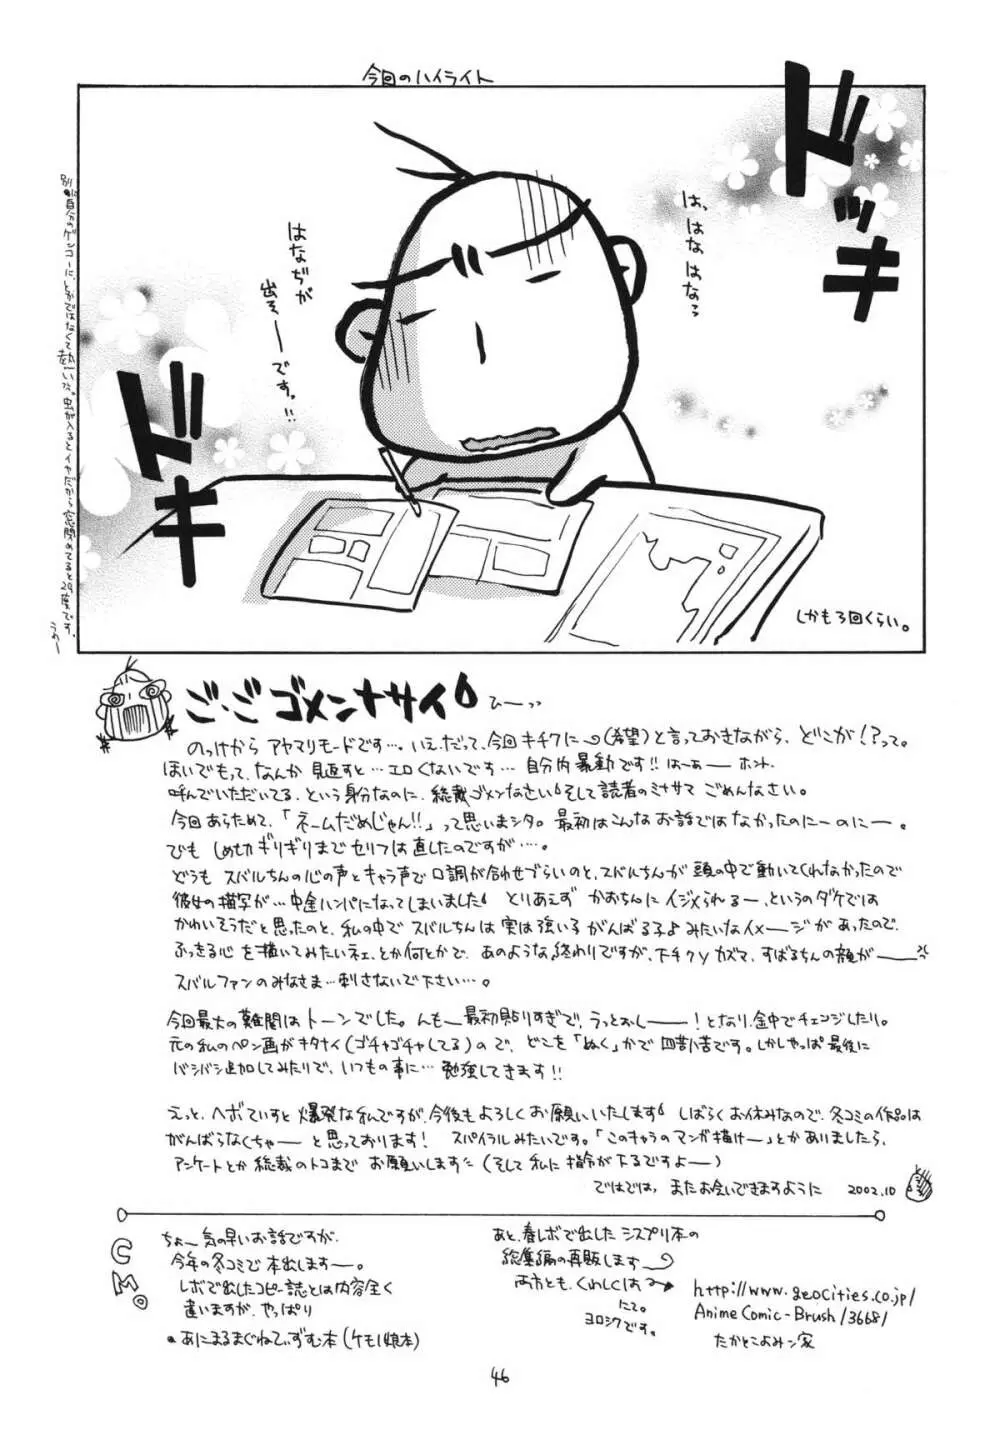 今回のハイライト
ドッキ
は、はなはなっ
はなぢが
出そーです。!!
ドキ
しかも3回くらい。
別に自分のゲンコーに、とかではなくて熱いな。虫が入るとイヤだから窓閉めてると29度です。うがー
ご・ごゴメンナサイ
ひーっっ
のっけから アヤマリモードです…。いえ、だって、今回キチクに(希望)と言っておきながら、どこが!?って。
ほいでもって、なんか 見返すと…エロくないです… 自分内暴動です!! はーあー ホント
呼んでいただいてる、という身分なのに、総裁ゴメンなさい そして読者のミナサマ ごめんなさい。
今回あらためて、「ネームだめじゃん!!」って思いまシタ。最初はこんなお話ではなかったのにーのにー。
でも しめ切ギリギリまでセリフは直したのですが…。
どうも スバルちんの心の声とキャラ声で口調が合わせづらいのと、スバルちんが頭の中で動いてくれなかったので
彼女の描写が…中途ハンパになってしまいました とりあえず かおちんにイジめられるー、というのダケでは
かわいそうだと思ったのと、私の中でスバルちんは実は強いろがんばる子よみたいなイメージがあったので、
ふっきる心を描いてみたいネェ、とか何とかで、あのような終わりですが、下チクyカズマ、すばるちんの顔がーー
スバルファンのみなさま…刺さないで下さい…。
今回最大の難関はトーンでした。んもー最初貼りすぎで、うっとおしーー!となり、途中でチェンジしたり。
元の私のペン画がキタナイ(ゴチャゴチャしてる)ので、どこを「ぬく」かで四苦八苦です。しかしやっぱ最後に
バシバシ追加してみたりで、いつもの事に…勉強してきます!!
えっと、ヘボていすと爆発な私ですが、今後もよろしくお願いいたします しばらくお休みなので、冬コミの作品は
がんばらなくちゃーと思っております! スパイラルみたいです。「このキャラのマンガ描けー」とかありましたら、
アンケートとか総裁のトコまでお願いします (そして私に指令が下るですよー)
ではでは、またお会いできますように 2002.10
CM。
ちょー気の早いお話ですが、
今年の冬コミで本出しますー。
レボで出したコピー誌とは内容全く
違いますが、やっぱり
・あにまるまぐねてぃずむ本(ケモノ娘本)
あと、春レボで出したシスプリ本の
総集編の再販します
両方とも、くわしくは→
にて。
ヨロシクです。
http://www.geocities.co.jp/
AnimeComic-Brush/3668/
たかとこよみン家
46